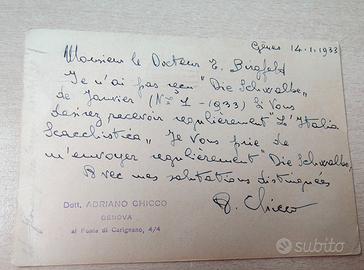 Gênes 14.1.1933
Monsieur le Docteur E. Birgfeld
Je n'ai pas reçu "Die Schwalbe„
de Janvier (No 1 - 1933) Si vous
desirez recevoir regulièrement "L'Italia
Scacchistica„ Je vous prie de
m'envoyer regulièrement "Die Schwalbe„
Avec mes salutations distinguées
A. Chicco
Dott. ADRIANO CHICCO
GENOVA
al Ponte di Carignano, 4/4
subito